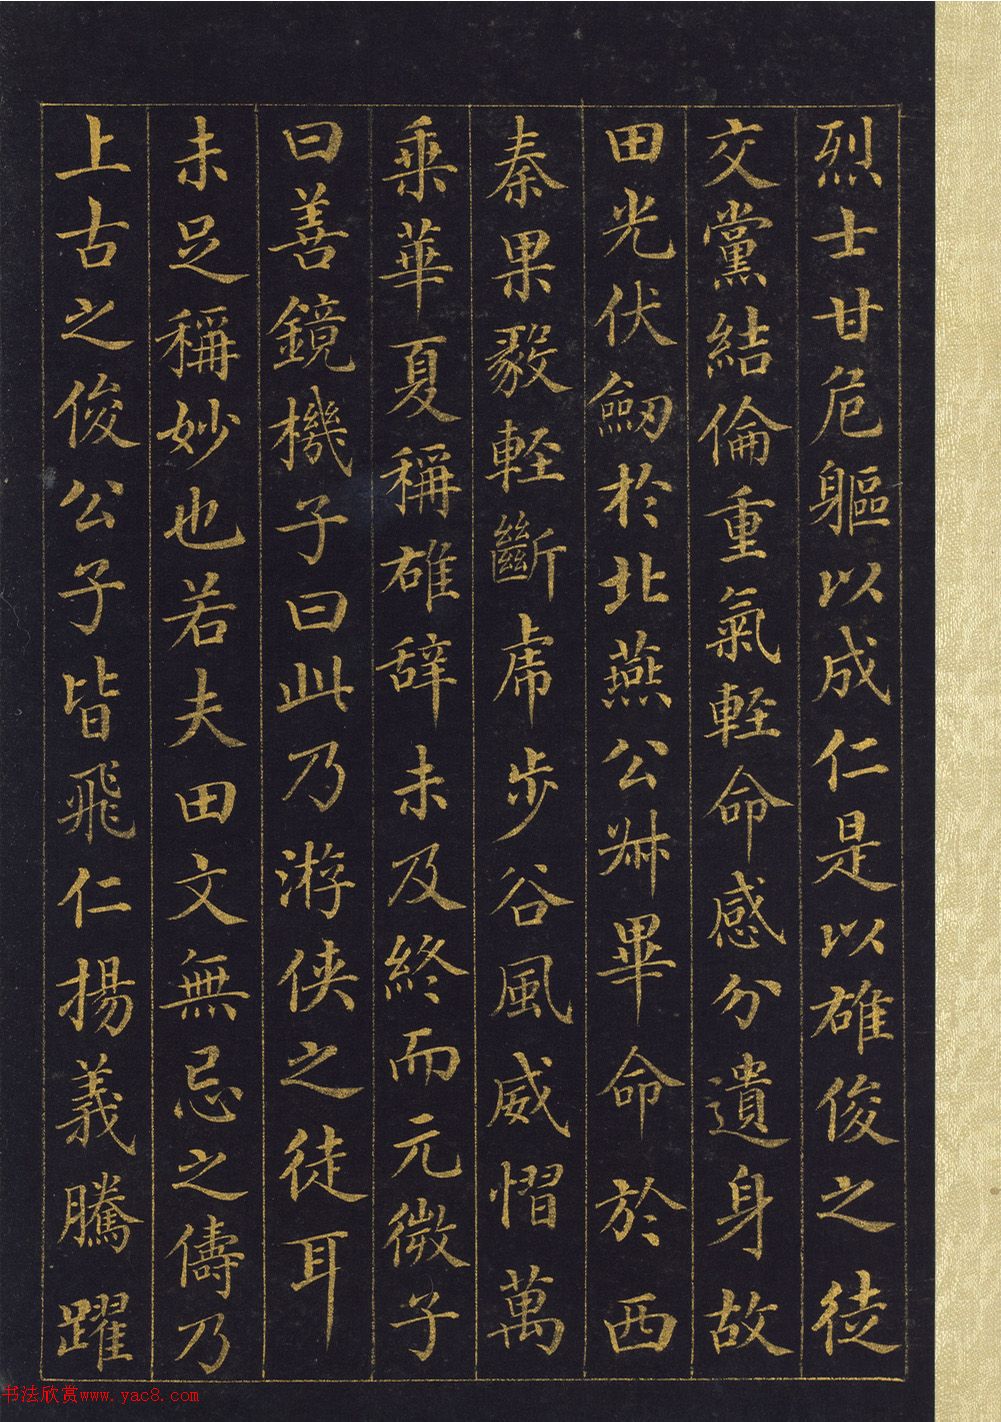 烈士甘危軀以成仁是以雄俊之徒
交黨結倫重氣輕命感分遺身故
田光伏劒於北燕公叔畢命於西
秦果毅輕斷虎步谷風威慴萬
乘華夏稱雄辞未及終而元微子
曰善鏡機子曰此乃游俠之徒耳
未足稱妙也若夫田文無忌之儔乃
上古之俊公子皆飛仁揚義騰躍
书法欣赏www.yac8.com